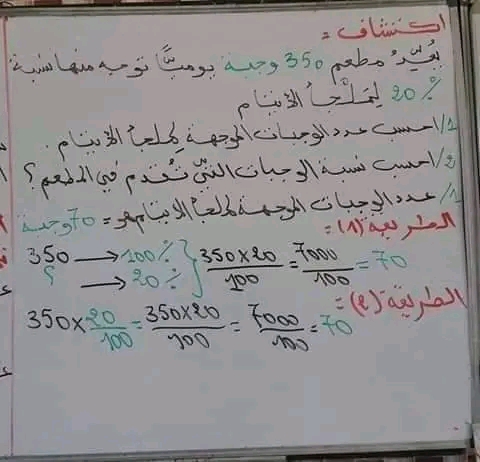 اكتشاف:
يُعِدُّ مطعم 350 وجبة يوميًّا توجه منها نسبة
20% لِمَلْجأ الأيتام
1/ احسب عدد الوجبات الموجهة لملجأ الأيتام.
2/ احسب نسبة الوجبات التي تُقدم في المطعم؟
1/ عدد الوجبات الموجهة لملجأ الأيتام هو = 70 وجبة
الطريقة (1):
350 → 100%
؟ → 20% } 350×20/100 = 7000/100 = 70
الطريقة (2):
350 × 20/100 = 350×20/100 = 7000/100 = 70